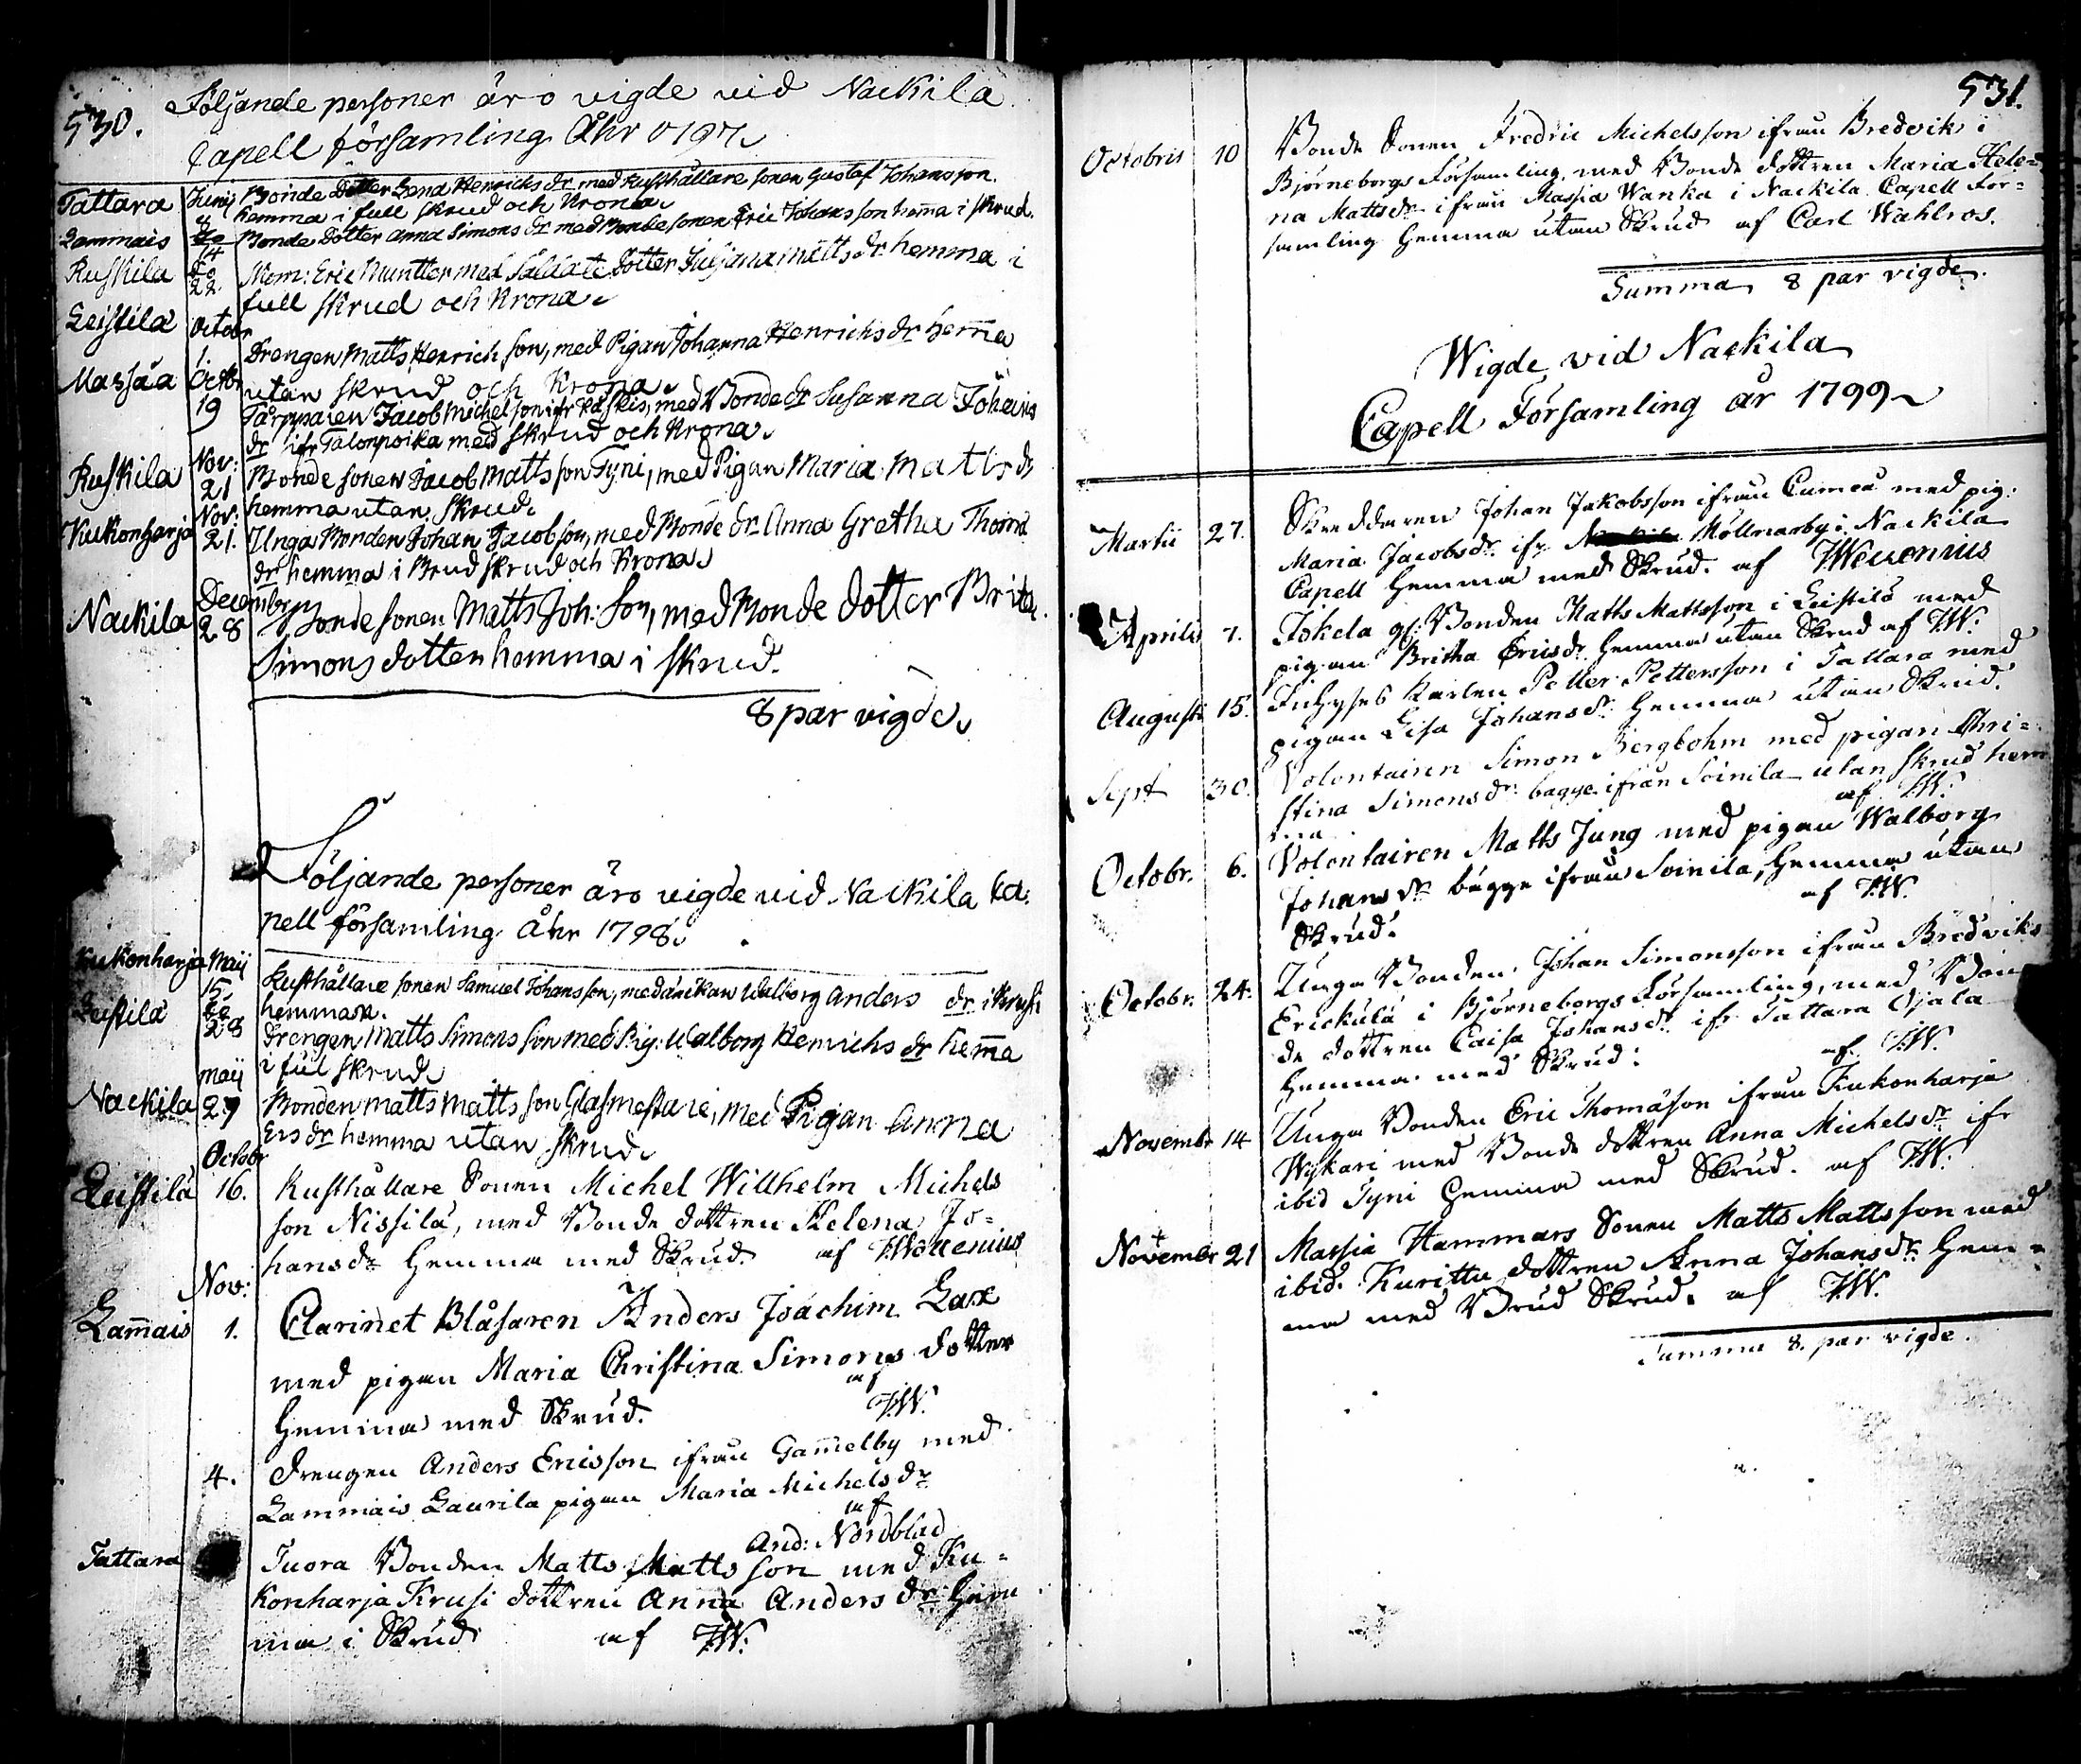 530.
Följande personer äro vigde vid Nackila
Capell församling Åhr 1797
Tattara Junij 4 Bonde Dotter Lena Henrichs dr med Rusthållare sonen Gustaf Johansson.
hemma i full skrud och Krona
Lammais do 14 Bonde Dotter Anna Simons dr med Bonde sonen Eric Johansson hema i skrud.
Ruskila do 22 Mom: Eric Muntter med Saldate dotter Juljana Matts dr hemma i
full skrud och Krona
Leistila Octobr 1. Drengen Matts Henrich son, med Pigan Johanna Henrichs dr hema
utan skrud och Krona
Massia Octbr 19 Tårpparen Jacob Michelson ifr Kaskis, med Bonde dr Susanna Johans
dr ifr Talonpoika med skrud och Krona
Ruskila Nov: 21 Bonde sonen Jacob Matts son Tyni, med Pigan Maria Matts dr
hemma utan skrud
Kukonharja Nov: 21. Unga Bonden Johan Jacobson, med Bonde dr Anna Gretha Thoma
dr hemma i Brud skrud och Krona
Nackila Decembr 28 Bonde sonen Matts Joh: Son, med Bonde dotter Brita
Simons dotter hemma i skrud.
8 par vigde
Följande personer äro vigde vid Nackila Ca:
pell församling Åhr 1798
Kukonharja Maij 15 Rusthållare sonen Samuel Johansson, med änkan Walborg Anders dr
hemma
Leistila do 28 Drengen Matts Simons son med Pig: Walborg Henrichs dr hema
i ful skrud
Nackila Maij 29 Bonden Matts Matts son Glasmestare, med Pigan Anna
Ers dr hemma utan skrud
Leistila Octobr 16. Rusthållare Sonen Michel Willhelm Michels
son Nissila, med Bonde dottren Helena Jo=
hansdr hemma med Skrud af JWeuenius
Lamais Nov: 1. Clarinet Blåsaren Anders Joachim Lax
med pigan Maria Christina Simons dotter
hemma med Skrud. af JW.
4. Drengen Anders Ericsson ifrån Gamelby med
Lammais Laurila pigan Maria Michels dr
af And: Nordblad
Tattara Juora Bonden Matts Matts son med Ku=
konharja Krusi dottren Anna Anders dr hem
ma i Skrud af JW.
531.
Octobris 10 Bonde Sonen Fredric Michelsson ifrån Bredvik i
Bjørneborgs Församling, med Bonde dottren Maria Hele=
na Mattsdr ifrån Massia Wanka i Nackila Capell För=
samling hemma utan Skrud af Carl Wahlros.
Summa 8 par vigde.
Wigde vid Nackila
Capell Församling år 1799
Martii 27. Skreddaren Johan Jakobsson ifrån Cumoa med pig.
Maria Jacobsdr ifr Möllnarby i Nackila
Capell hemma med Skrud. af JWeuenius
Aprilis 7. Jokela gl. Bonden Matts Mattsson i Leistilä med
pigan Britha Ericsdr hemma utan Skrud af JW.
Augusti 15. Inhyses Karlen Petter Pettersson i Tattara med
pigan Lisa Johansdr hemma utan Skrud.
Sept 30. Volontairen Simon Bergbohm med pigan Chri=
stina Simonsdr bägge ifrån Soinila utan skrud hem
ma af JW.
Octobr. 6. Volontairen Matts Jung med pigan Walborg
Johansdr bägge ifrån Soinila, hemma utan
Skrud. af JW.
Octobr. 24. Unga Bonden Johan Simonsson ifrån Bredviks
Erickula i Bjørneborgs Församling, med Bon
de dottren Caisa Johansdr ifr Tattara Ojala
hemma med Skrud. af JW.
Novembr 14 Unga Bonden Eric Thomasson ifrån Kukonharja
Wiskari med Bonde dottren Anna Michelsdr ifr
ibid Tyni hemma med Skrud. af JW.
Novembr 21 Massia Hammars Sonen Matts Mattsson med
ibid. Kurittu dottren Anna Johansdr hem=
ma med Brud Skrud. af JW.
Summa 8. par vigde.